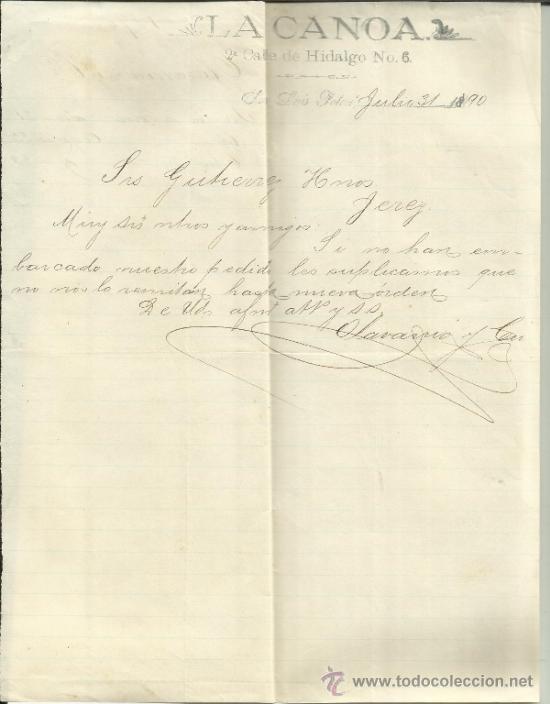 LA CANOA.
2ª Calle de Hidalgo No. 6.
San Luis Potosí, Julio 31 1890
Srs Gutierrez Hnos
Jerez.
Muy Srs ntros y amigos:
Si no han em-
barcado nuestro pedido les suplicamos que
no nos lo remitán hasta nueva órden
De Uds afmos attos y SS
y Ca
www.todocoleccion.net